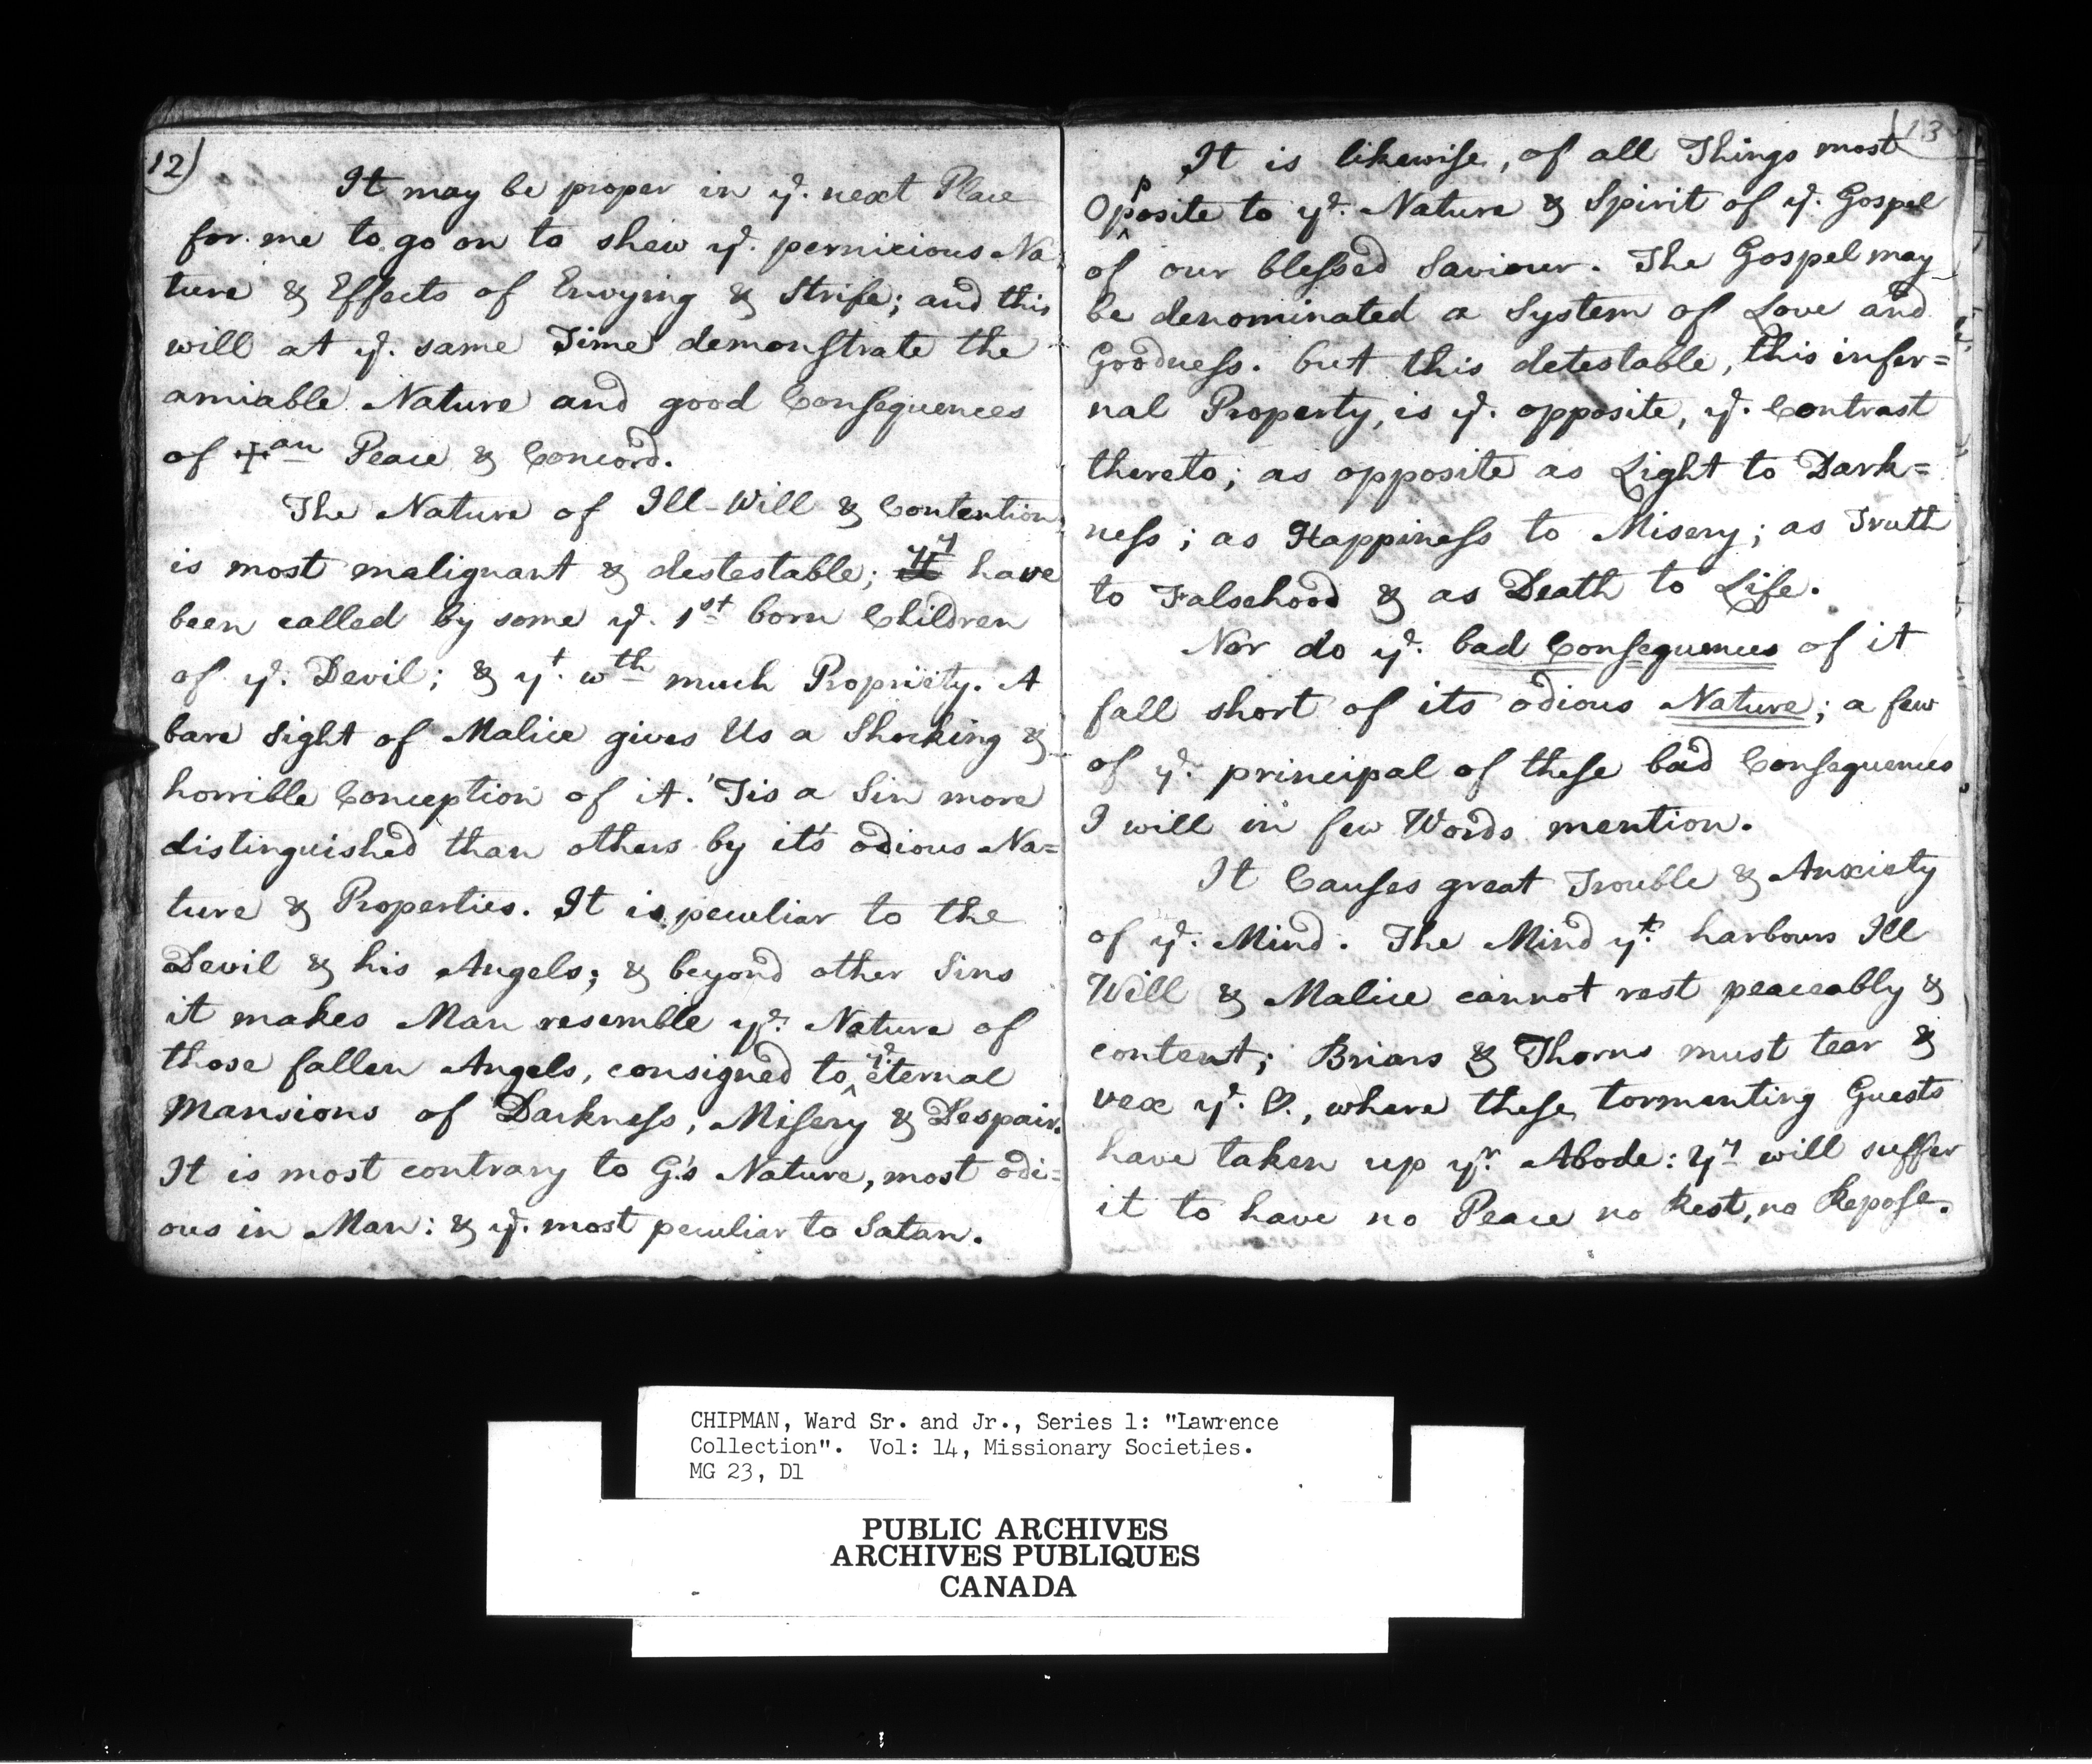 12)
It may be proper in yᵉ. next Place
for me to go on to shew yᵉ. pernicious Na
ture & Effects of Envying & Strife; and this
will at yᵉ. same Time demonstrate the
amiable Nature and good Consequences
of ✝an Peace & Concord.
The Nature of Ill-Will & Contention
is most malignant & destestable; yʸ have
been called by some yᵉ. 1st born Children
of yᵉ. Devil; & yᵗ. wth much Propriety. A
bare Sight of Malice gives Us a Shocking &
horrible Conception of it. 'Tis a Sin more
distinguished than others by it's odious Na=
ture & Properties. It is peculiar to the
Devil & his Angels; & beyond other Sins
it makes Man resemble yᵉ. Nature of
those fallen Angels, consigned to yᵉ eternal
Mansions of Darkness, Misery & Despair.
It is most contrary to G's Nature, most odi=
ous in Man: & yᵉ. most peculiar to Satan.
13
It is likewise, of all Things most
Opposite to yᵉ. Nature & Spirit of yᵉ. Gospel
of our blessed Saviour. The Gospel may
be denominated a System of Love and
Goodness. but this detestable, this infer=
nal Property, is yᵉ. opposite, yᵉ. Contrast
thereto; as opposite as Light to Dark=
ness; as Happiness to Misery; as Truth
to Falsehood & as Death to Life.
Nor do yᵉ. bad Consequences of it
fall short of its odious Nature; a few
of yᵉ. principal of these bad Consequences
I will in few Words mention.
It Causes great Trouble & Anxiety
of yᵉ. Mind. The Mind yᵗ. harbours Ill
Will & Malice cannot rest peaceably &
content; Briars & Thorns must tear &
vex yᵉ. ♡., where these tormenting Guests
have taken up yʳ. Abode: Yʸ will suffer
it to have no Peace no Rest, no Repose.
CHIPMAN, Ward Sr. and Jr., Series 1: "Lawrence
Collection". Vol: 14, Missionary Societies.
MG 23, D1
PUBLIC ARCHIVES
ARCHIVES PUBLIQUES
CANADA